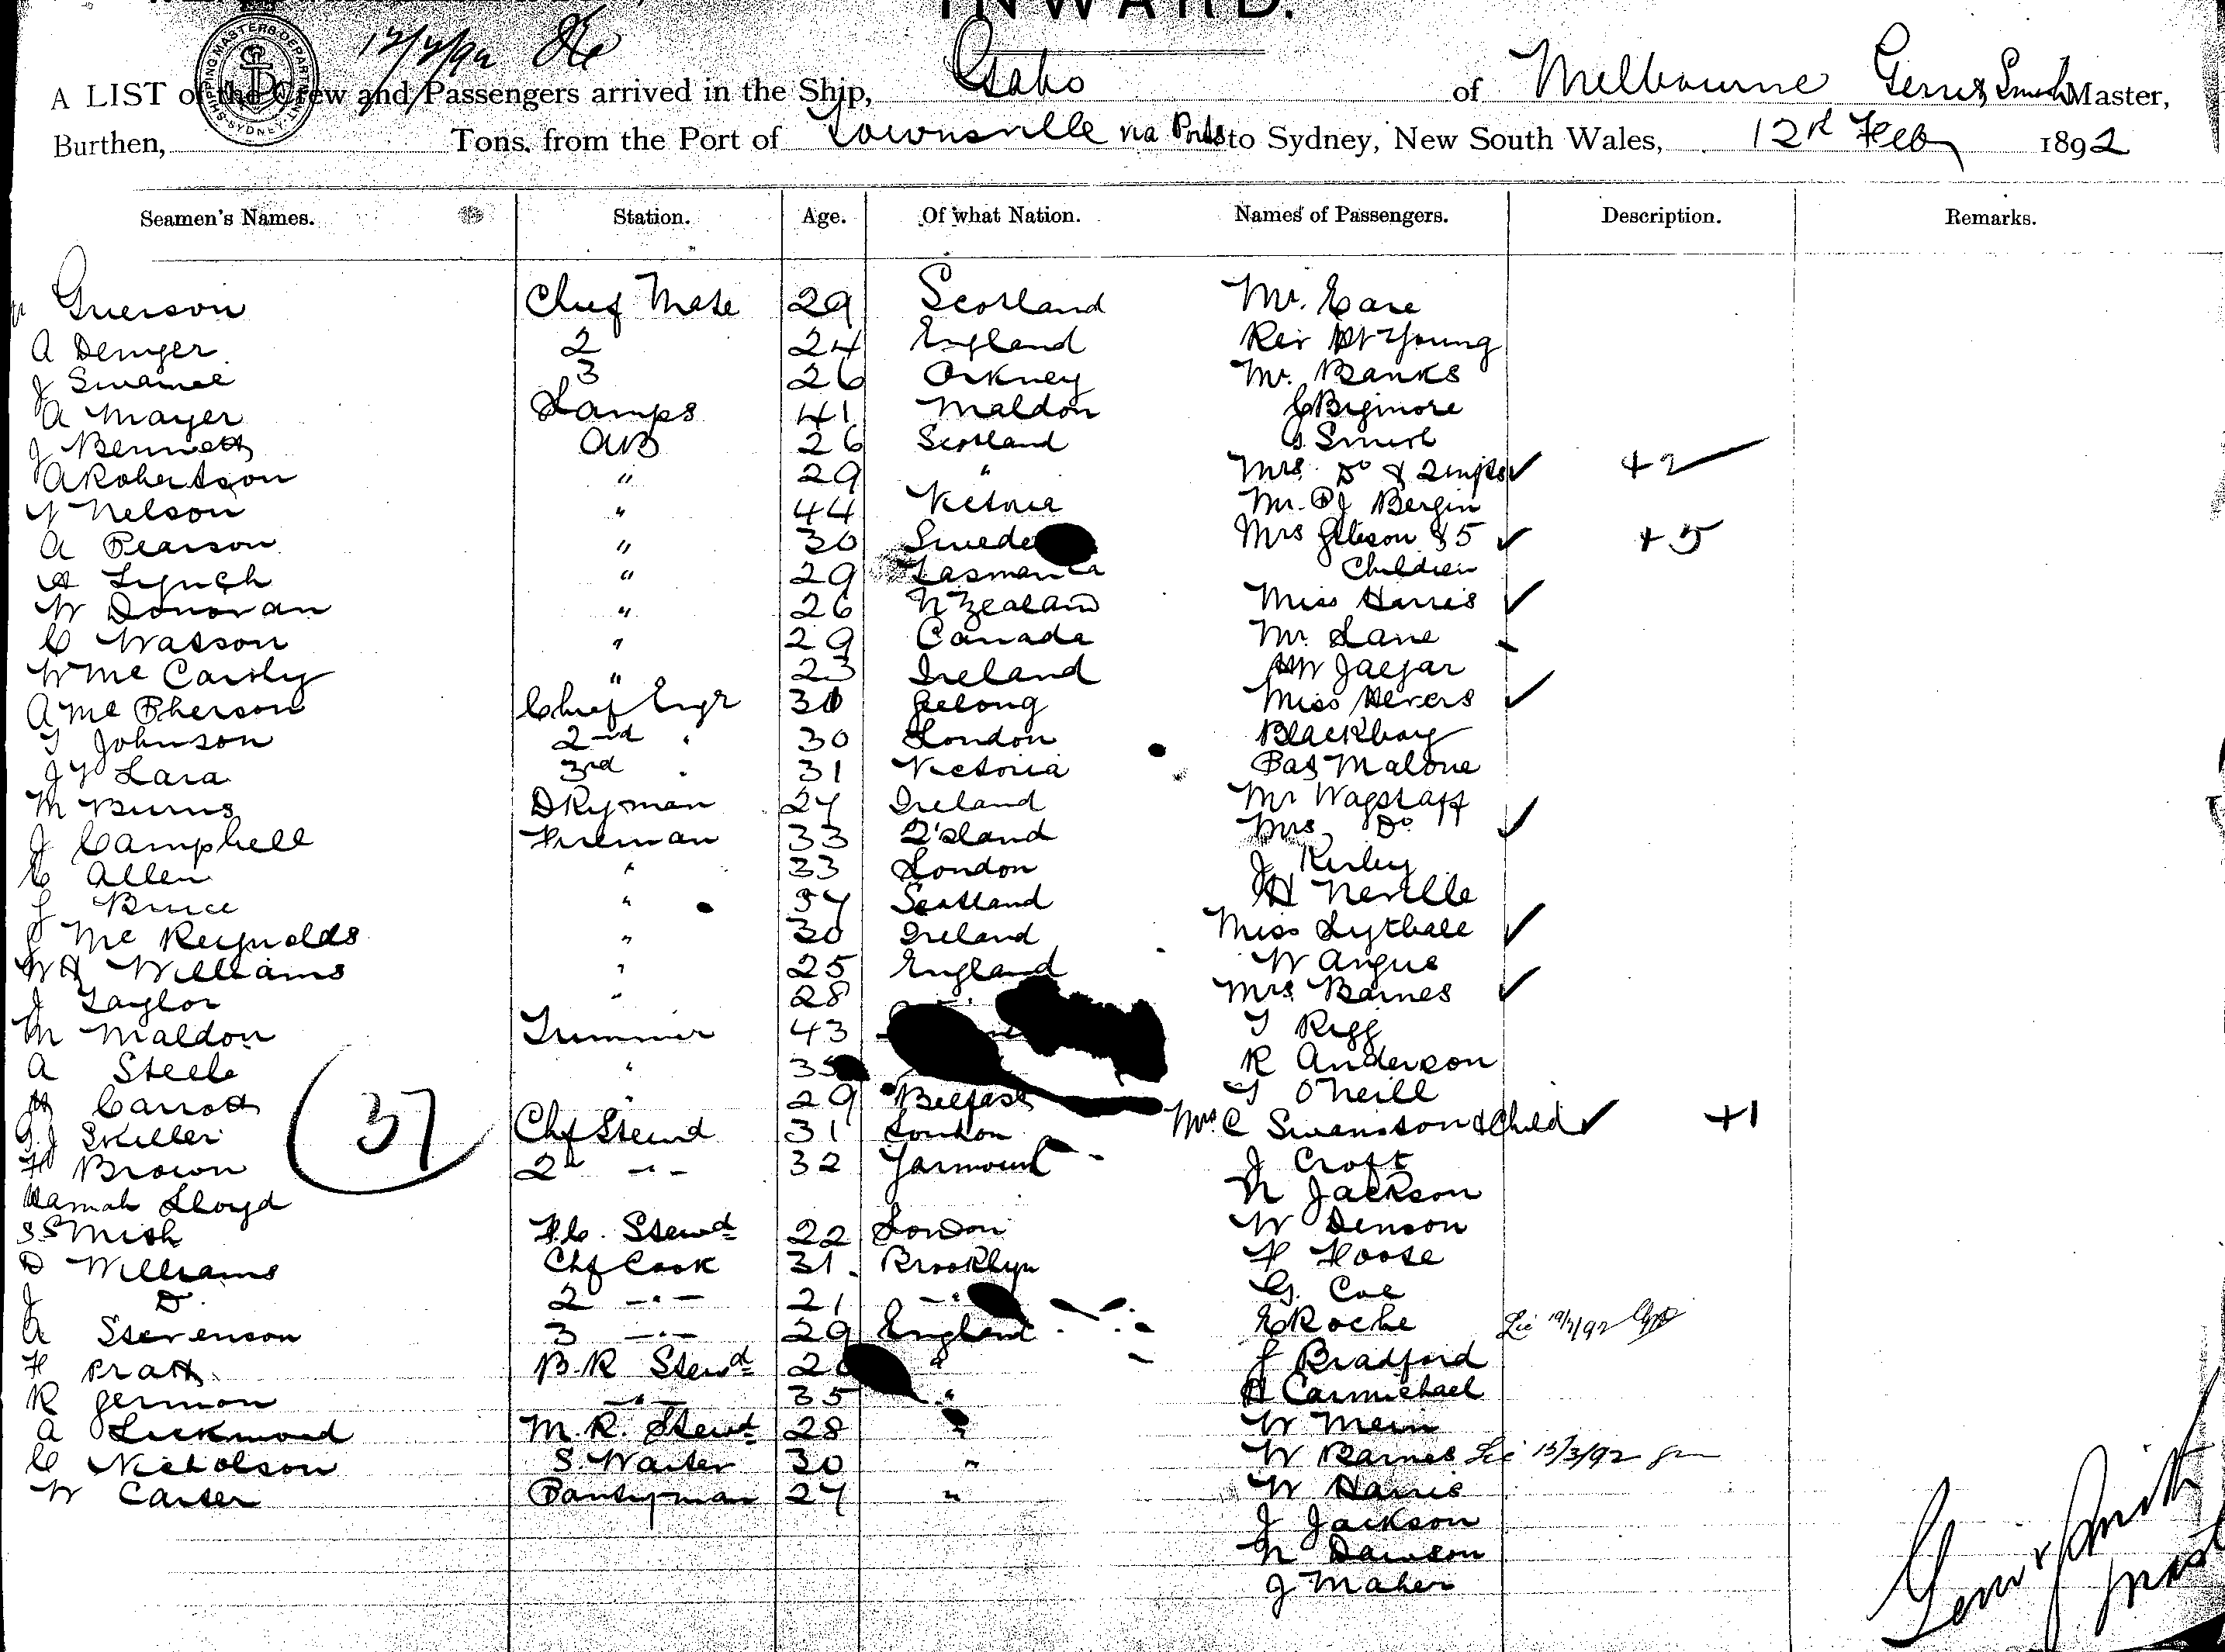 INWARD.
12/2/92
A LIST of the Crew and Passengers arrived in the Ship, Gabo of Melbourne Smith Master,
Burthen, Tons, from the Port of Townsville via Ports to Sydney, New South Wales, 12th Feby 1892
Seamen's Names. Station. Age. Of what Nation. Names of Passengers. Description. Remarks.
Grierson Chief Mate 29 Scotland Mr. Care
A 2 24 England Rev Young
J 3 26 Orkney Mr. Banks
A Mayer Lamps 41 Maldon Bigmore
J Bennett AB 26 Scotland G.
A Robertson " 29 " Mrs. Do & 2 ✓ +2
Nelson " 44 Victoria Mr. PJ Bergin
A Pearson " 30 Swede Mrs Gibson & 5 ✓ +5
Lynch " 29 Tasmania Children
W Donovan " 26 N Zealand Miss Harris ✓
C Watson " 29 Canada Mr. Lane
W McCarthy " 23 Ireland Jaegar
A McPherson Chief Engr 30 Geelong Miss ✓
T Johnson 2nd " 30 London Blackboy
J Lara 3rd " 31 Victoria Pat Malone
M Burns Dkyman 27 Ireland Mr Wagstaff
J Campbell Fireman 33 Q'sland Mrs Do ✓
C Allen " 33 London J Kirley
J Bruce " 37 Scotland H Neville
McReynolds " 30 Ireland Miss Lythall ✓
WH Williams " 25 England W Angus
J Taylor " 28 Mrs Barnes ✓
M Maldon Trimmer 43 T Rigg
A Steele " 35 R Anderson
Carroll " 29 Belfast T O'Neill
37
Skiller Chf Stewd 31 London Mrs. C Swanston & Child ✓ +1
H Brown 2d " 32 Yarmouth J Croft
Hannah Lloyd N Jackson
S Smith F.C. Stewd 22 London W Denson
D Williams Chf Cook 31 Brooklyn F Hoose
J Do 2 " 21 " G. Coe
A Stevenson 3 " 29 England E Roche
H Pratt B.R Stewd 2 " J Bradford
R Germon " 35 " H Carmichael
A Luckmond M.R. Stewd 28 " W Mein
C Nicholson S. Waiter 30 " W Barnes 15/3/92
W Carter Pantryman 27 " W Harris
J Jackson
N Dawson
J Maher
Smith